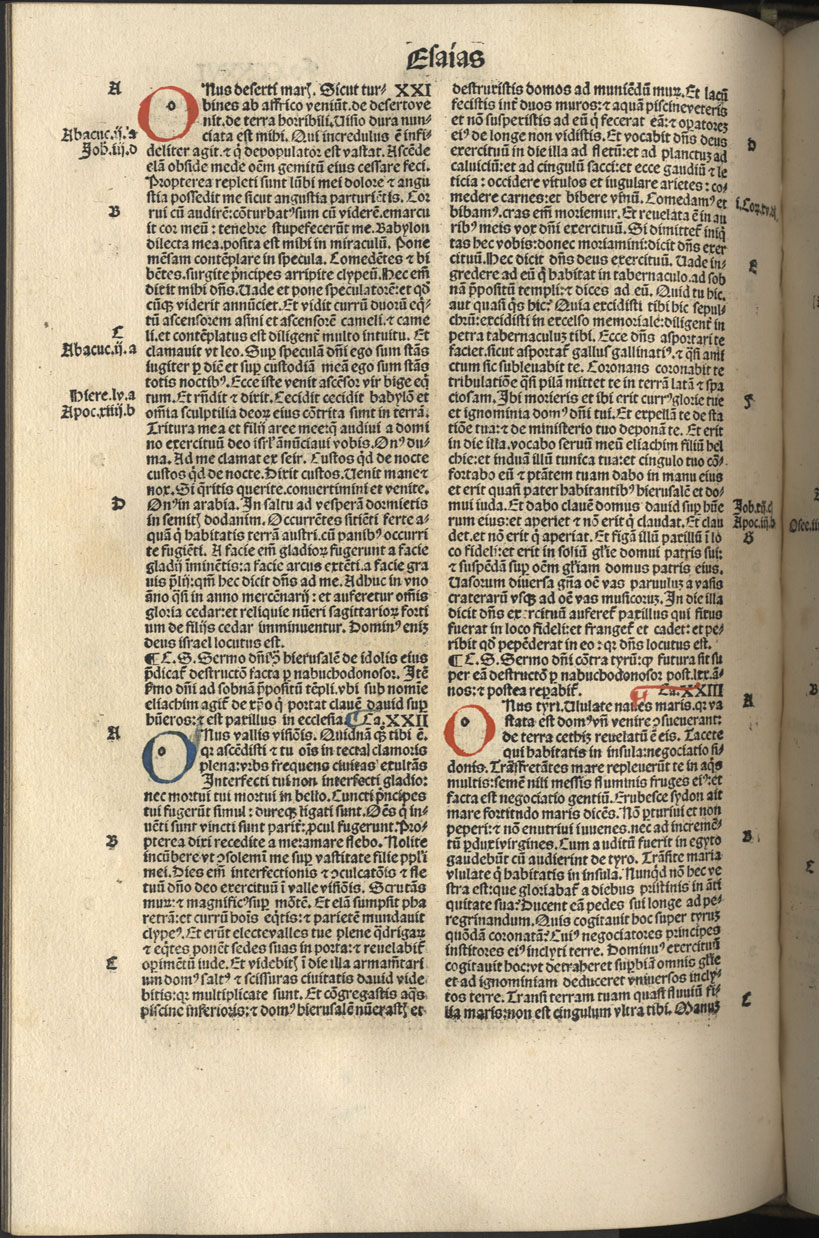 Esaias
A
Abacuc.ij.a
Job.iij.d
B
C
Abacuc.ij.a
Hiere.lv.a
Apoc.xiiij.b
D
A
B
C
ONus deserti marꝭ. Sicut tur- XXI
bines ab affrico veniūt.de desertove
nit.de terra horribili.Uisio dura nun-
ciata est mihi. Qui incredulus ē infi
deliter agit.⁊ q̄ depopulator est vastat. Ascēde
elā obside mede oēm gemitū eius cessare feci.
Propterea repleti sunt lūbi mei dolore ⁊ angu
stia possedit me sicut angustia parturiētis. Cor
rui cū audirē:cōturbatꝰsum cū viderē.emarcu
it cor meū : tenebre stupefecerūt me.Babylon
dilecta mea.posita est mihi in miraculū. Pone
mēsam contēplare in specula. Comedētes ⁊ bi
bētes.surgite pͥncipes arripite clypeū.Hec em̄
dixit mihi dn̄s.Uade et pone speculatorē:et qd̓
cūqꝫ viderit annūciet.Et vidit currū duorū eqͥ-
tū ascensorem asini et ascensorē cameli.⁊ came
li.et contēplatus est diligent̓ multo intuitu. Et
clamauit vt leo. Suꝑ speculā dn̄i ego sum stās
iugiter ꝑ diē et suꝑ custodiā meā ego sum stās
totis noctibꝰ.Ecce iste venit ascēsor vir bige eqͥ
tum.Et rn̄dit ⁊ dixit. Cecidit cecidit babylō et
om̄ia sculptilia deoꝝ eiꝰ cōtrita sunt in terrā.
Tritura mea et filij aree mee:q̄ audiui a domi
no exercituū deo isrl̓ ānūciaui vobis.Onꝰ du-
ma. Ad me clamat ex seir. Custos qͥd de nocte
custos qͥd de nocte.Dixit custos.Uenit mane ⁊
nox.Si q̄ritis querite.conuertimini et venite.
Onꝰ in arabia. In saltu ad vesperā dormietis
in semitꝭ dodanim. Occurrētes sitiēti ferte a-
quā qͥ habitatis terrā austri.cū panibꝰ occurri
te fugiēti. A facie em̄ gladioꝝ fugerunt a facie
gladij īminētis:a facie arcus extēti.a facie gra
uis p̄lij:qm̄ hec dicit dn̄s ad me.Adhuc in vno
āno qͣsi in anno mercēnarij : et auferetur om̄is
gloria cedar:et reliquie nūeri sagittarioꝝ forti
um de filijs cedar imminuentur. Dominꝰ eniꝫ
deus israel locutus est.
¶ C.S. Sermo dn̄icꝰ hierusalē de idolis eius
p̄dicat̓ destructō facta ꝑ nabuchodonosor. Itē
s̓mo dn̄i ad sobnā p̄positū tēpli.vbi sub nomīe
eliachim agit̓ de xp̄o qͥ portat clauē dauid suꝑ
hūeros:⁊ est paxillus in ecclesia. Ca.XXII
ONus vallis visiōis. Quidnā qꝫ tibi ē.
qꝛ ascēdisti ⁊ tu oīs in tecta: clamoris
plena:vrbs frequens ciuitas exultās
Interfecti tui non interfecti gladio:
nec mortui tui mortui in bello. Cuncti pͥncipes
tui fugerūt simul : dureqꝫ ligati sunt.Oēs q̄ in-
uēti sunt vincti sunt parit̓:ꝓcul fugerūt.Pro-
pterea dixi recedite a me:amare flebo. Nolite
incūbere vt ꝯsolemī me suꝑ vastitate filie ppl̓i
mei. Dies em̄ interfectionis ⁊ ꝯculcatōis ⁊ fle
tuū dn̄o deo exercituū ī valle visiōis. Scrutās
murꝫ:⁊ magnificꝰsuꝑ mōtē. Et elā sumpsit pha
retrā:et currū hoīs eqͥtis:⁊ parietē mundauit
clypeꝰ. Et erūt electevalles tue plene qͣdrigaꝝ
⁊ eqͥtes ponēt sedes suas in porta:⁊ reuelabit̓
oꝑimētū iude. Et videbitꝭ ī die illa armamētari
um domꝰ saltꝰ ⁊ scissuras ciuitatis dauid vide
bitis:qꝛ multiplicate sunt. Et cōgregastis aqͣs
piscine inferioris:⁊ domꝰ hierusalē nūerastꝭ et
destruxistis domos ad muniēdū murꝫ.Et lacū
fecistis int̓ duos muros:⁊ aquā piscineveteris
et nō suspexistis ad eū qͥ fecerat eā:⁊ oꝑatoreꝫ
eiꝰ de longe non vidistis. Et vocabit dn̄s deus
exercituū in die illa ad fletū:et ad planctuꝫ ad
caluiciū:et ad cingulū sacci:et ecce gaudiū ⁊ le
ticia : occidere vitulos et iugulare arietes : co-
medere carnes:et bibere vinū. Comedamꝰ et
bibamꝰ.cras em̄ moriemur. Et reuelata ē in au
ribꝰ meis vox dn̄i exercituū. Si dimittet̓ iniqͥ
tas hec vobis:donec moriamini:dicit dn̄s exer
cituū.Hec dicit dn̄s deus exercituū. Uade in-
gredere ad eū qͥ habitat in tabernaculo.ad sob
nā p̄positū templi:⁊ dices ad eū. Quid tu hic.
aut quasi qͥs hic? Quia excidisti tibi hic sepul-
chrū:excidisti in excelso memoriale:diligent̓ in
petra tabernaculuꝫ tibi. Ecce dn̄s asportari te
faciet.sicut asportat̓ gallus gallinatiꝰ.⁊ qͣsi ami
ctum sic subleuabit te. Coronans coronabit te
tribulatiōe qͣsi pilā mittet te in terrā latā ⁊ spa
ciosam. Ibi morieris et ibi erit currꝰglorie tue
et ignominia domꝰ dn̄i tui. Et expellā te de sta
tiōe tua:⁊ de ministerio tuo deponā te. Et erit
in die illa.vocabo seruū meū eliachim filiū hel
chie:et induā illū tunica tua:et cingulo tuo cō-
fortabo eū ⁊ ptātem tuam dabo in manu eius
et erit quasi pater habitantibꝰ hierusalē et do-
mui iuda. Et dabo clauē domus dauid suꝑ hūe
rum eius:et aperiet ⁊ nō erit qͥ claudat. Et clau
det.et nō erit qͥ aperiat. Et figā illū paxillū ī lo
co fideli:et erit in soliū gl̓ie domui patris sui:
⁊ suspēdā suꝑ eum oēm gl̓iam domus patris eius.
Uasorum diuersa gn̄a oē vas paruuluꝫ a vasis
crateraruꝫ vsqꝫ ad oē vas musicoruꝫ. In die illa
dicit dn̄s exercituū aufereƭ paxillus qui fixus
fuerat in loco fideli:et franget̓ et cadet:et pe-
ribit qd̓ pepēderat in eo : qꝛ dn̄s locutus est.
¶ C.S. Sermo dn̄i cōtra tyrū:qꝫ futura sit su
per eā destructō ꝑ nabuchodonosor post.lxx.ā-
nos:⁊ postea reꝑabit̓. Ca.XXIII
ONus tyri.Ululate naues maris.qꝛ va
stata est domꝰvn̄ venire ꝯsueuerant:
de terra cethiꝫ reuelatū ē eis. Tacete
qui habitatis in insula:negociatio si-
donis.Trāsfretātes mare repleuerūt te in aqͥs
multis:semē nili messis fluminis fruges eiꝰ:et
facta est negociatio gentiū.Erubesce sydon ait
mare fortitudo maris dicēs. Nō ꝑturiui et non
peperi:⁊ nō enutriui iuuenes.nec ad incremē-
tū ꝑduxi virgines.Cum auditū fuerit in egyto
gaudebūt cū audierint de tyro. Trāsite maria
vlulate qͥ habitatis in insula. Nunqͥd nō hec ve
stra est:que gloriabat̓ a diebus pristinis in āti
quitate sua? Ducent eā pedes sui longe ad pe-
regrinandum.Quis cogitauit hoc super tyruꝫ
quōdā coronatā? Cuiꝰ negociatores principes
institores eiꝰ inclyti terre. Dominꝰ exercituū
cogitauit hoc:vt detraheret suꝑbiā omnis gl̓ie
et ad ignominiam deduceret vniuersos incly-
tos terre. Transi terram tuam quasi fluuiū fi-
lia maris:non est cingulum vltra tibi. Manuꝫ
D
i.Coꝝ.xv.
E
F
Job.xij.c
Apoc.iij.b
G
A
B
C
Osee.